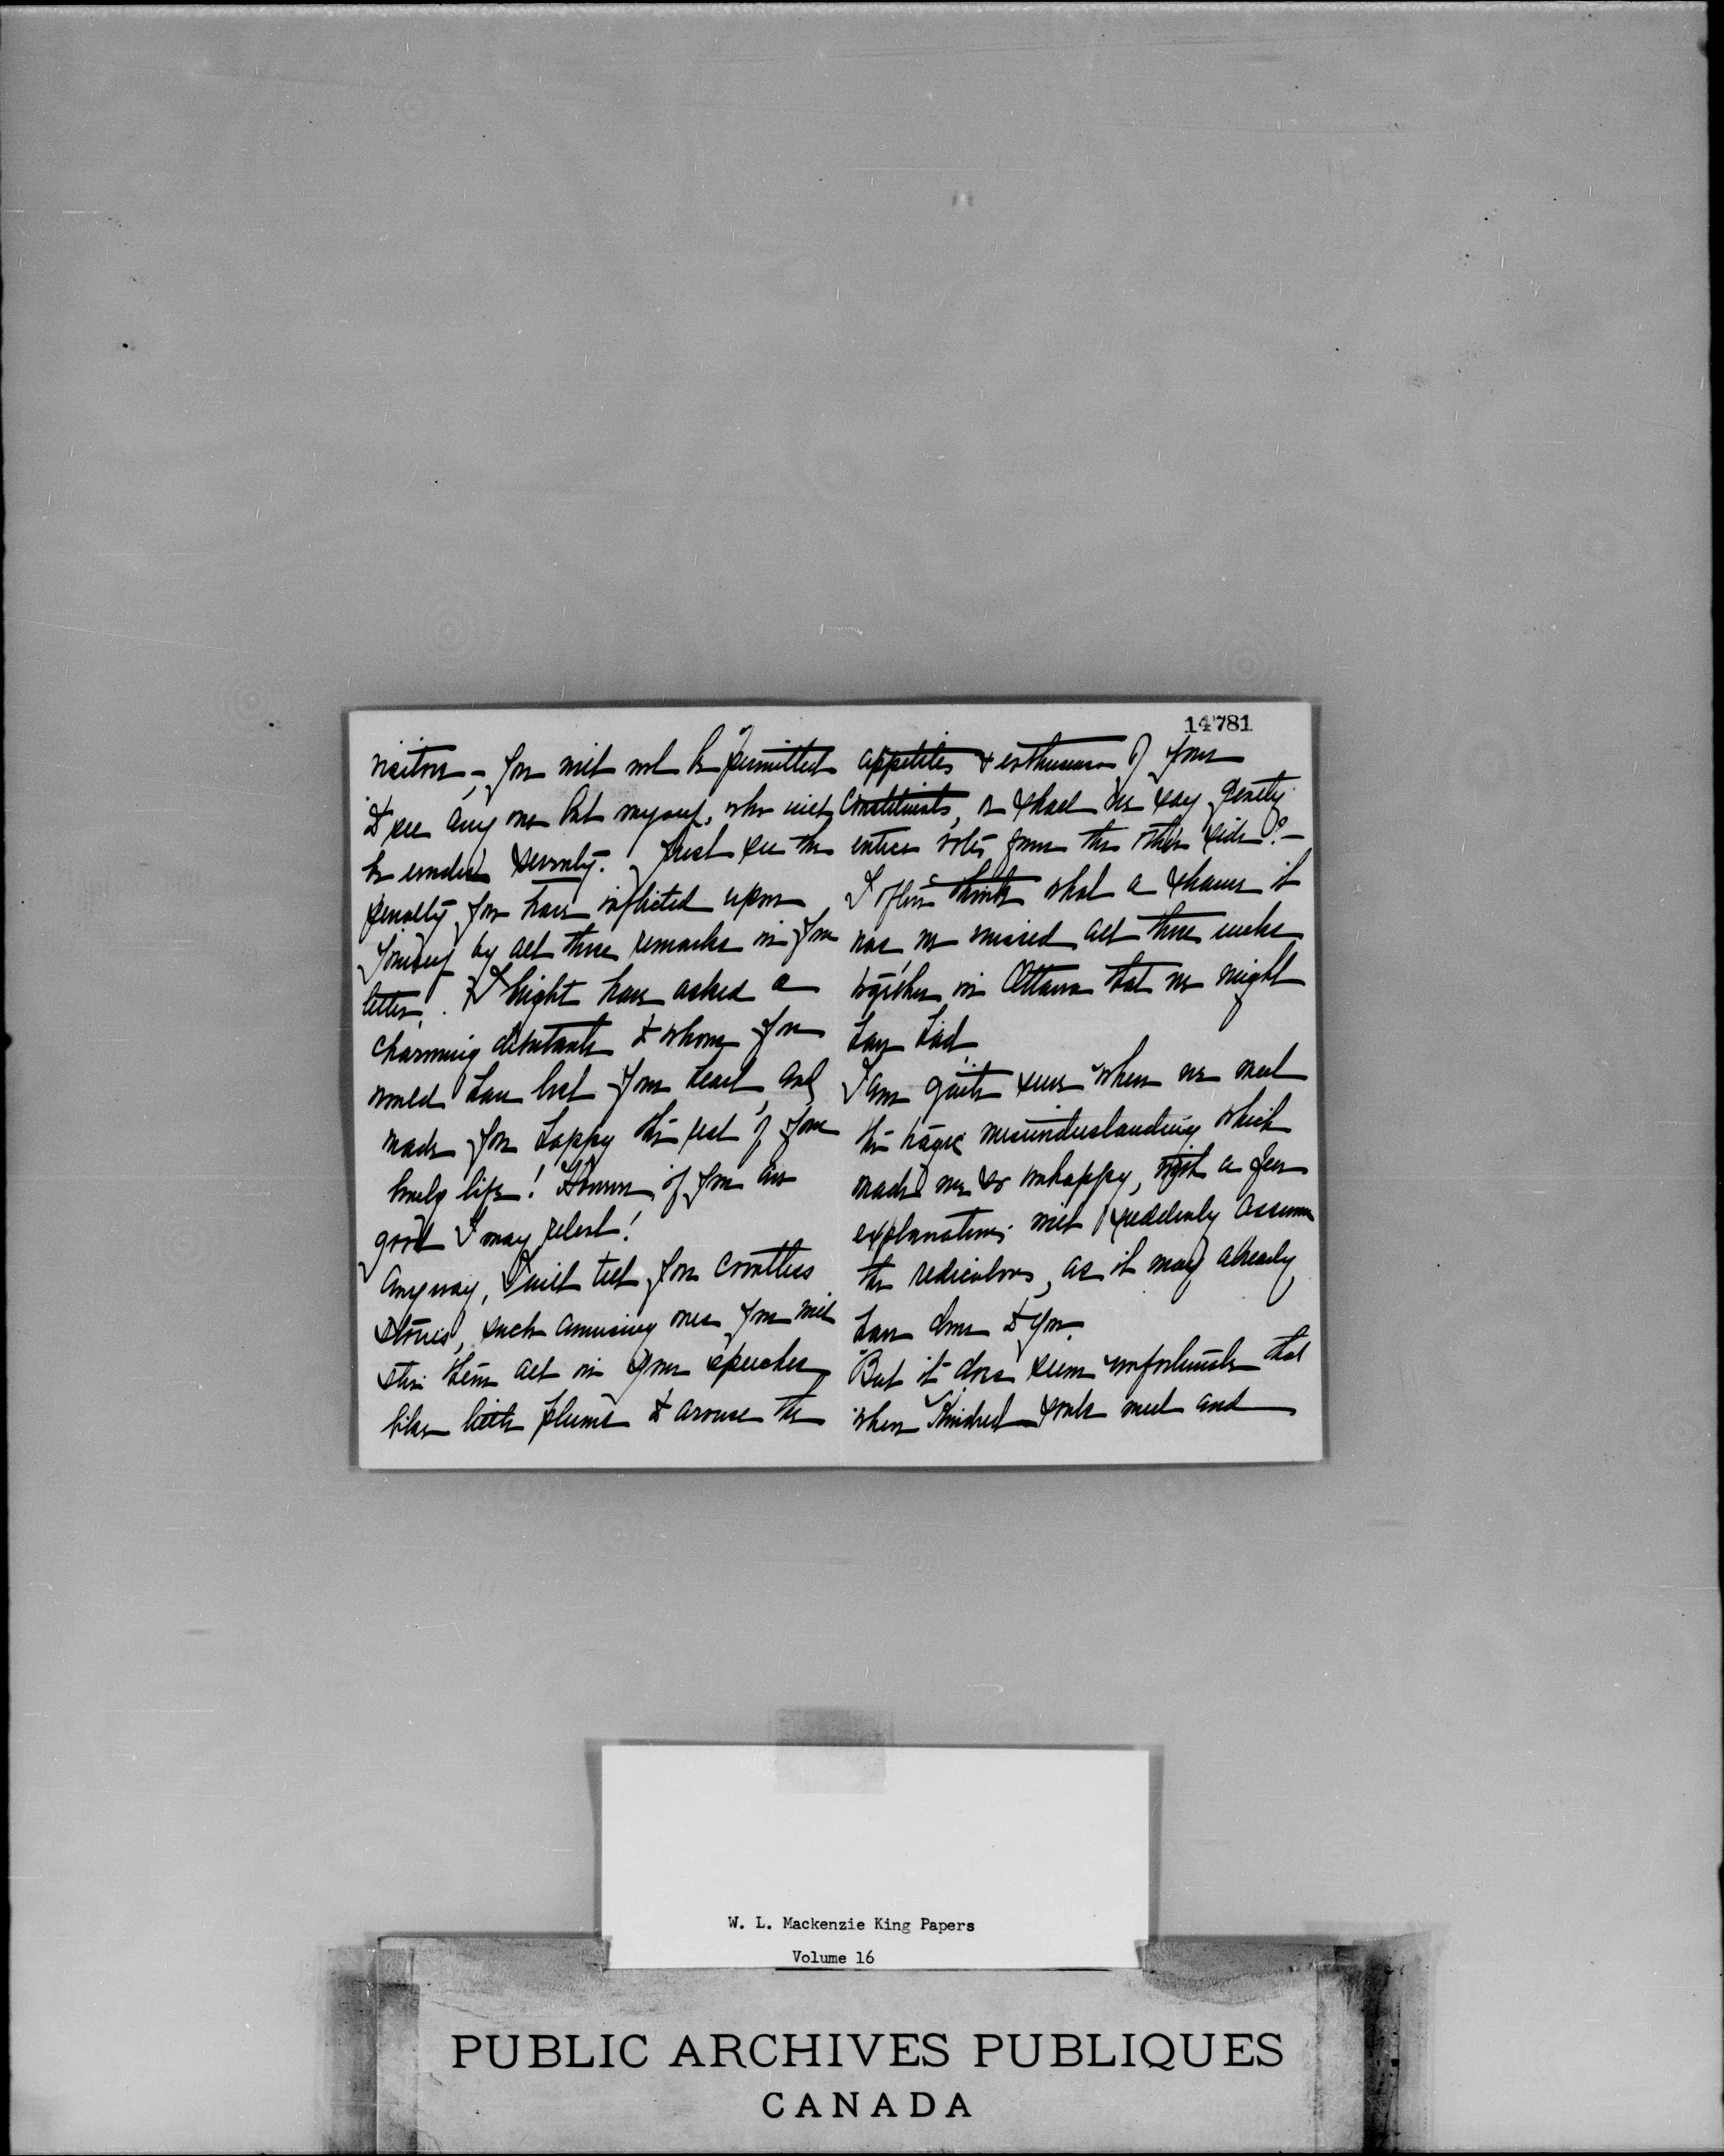 14781
visitors - you will not be permitted
to see any one but myself, who will
be severely. Just see the
penalty you have inflicted upon
yourself by all those remarks in your
letter. I might have asked a
charming debutante to whom you
would have lost your heart, and
made you happy the rest of your
lonely life! However if you are
good I may relent!
Anyway, I will tell you countless
stories, such amusing ones you will
stir them all in your speeches
like little plums to arouse the
appetites & enthusiasm of your
Constituents, or shall we say gently
entice votes from the other side? -
I often think what a shame it
was we missed all those weeks
together in Ottawa that we might
have had.
I am quite sure when we meet
the tragic misunderstanding which
made me so unhappy, with a few
explanations will suddenly assume
the rediculous, as it may already
have done to you.
But it does seem unfortunate that
when Kindred souls meet and
W. L. Mackenzie King Papers
Volume 16
PUBLIC ARCHIVES PUBLIQUES
CANADA